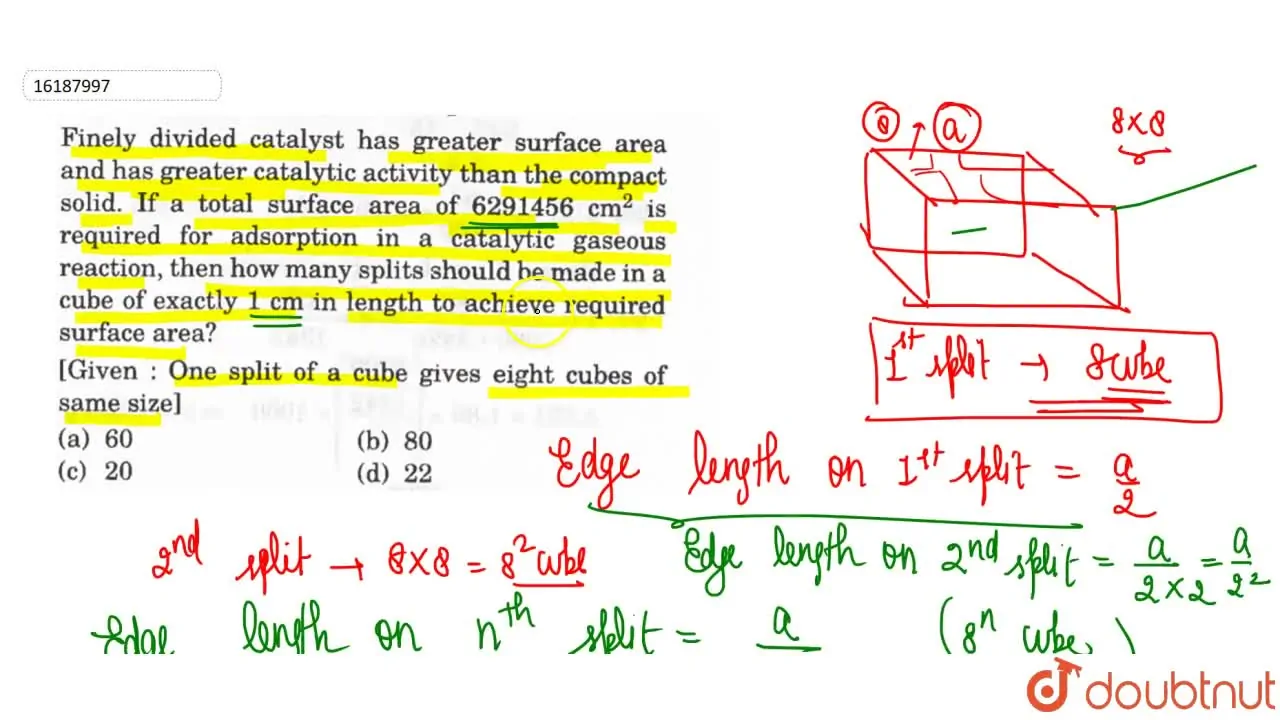 16187997
Finely divided catalyst has greater surface area
and has greater catalytic activity than the compact
solid. If a total surface area of 6291456 cm² is
required for adsorption in a catalytic gaseous
reaction, then how many splits should be made in a
cube of exactly 1 cm in length to achieve required
surface area?
[Given : One split of a cube gives eight cubes of
same size]
(a) 60 (b) 80
(c) 20 (d) 22
a
8×8
1st split → 8 cube
Edge length on 1st split = a/2
2nd split → 8×8 = 8² cube
Edge length on 2nd split = a/2×2 = a/2²
Edge length on nth split = a (8ⁿ cube)
doubtnut